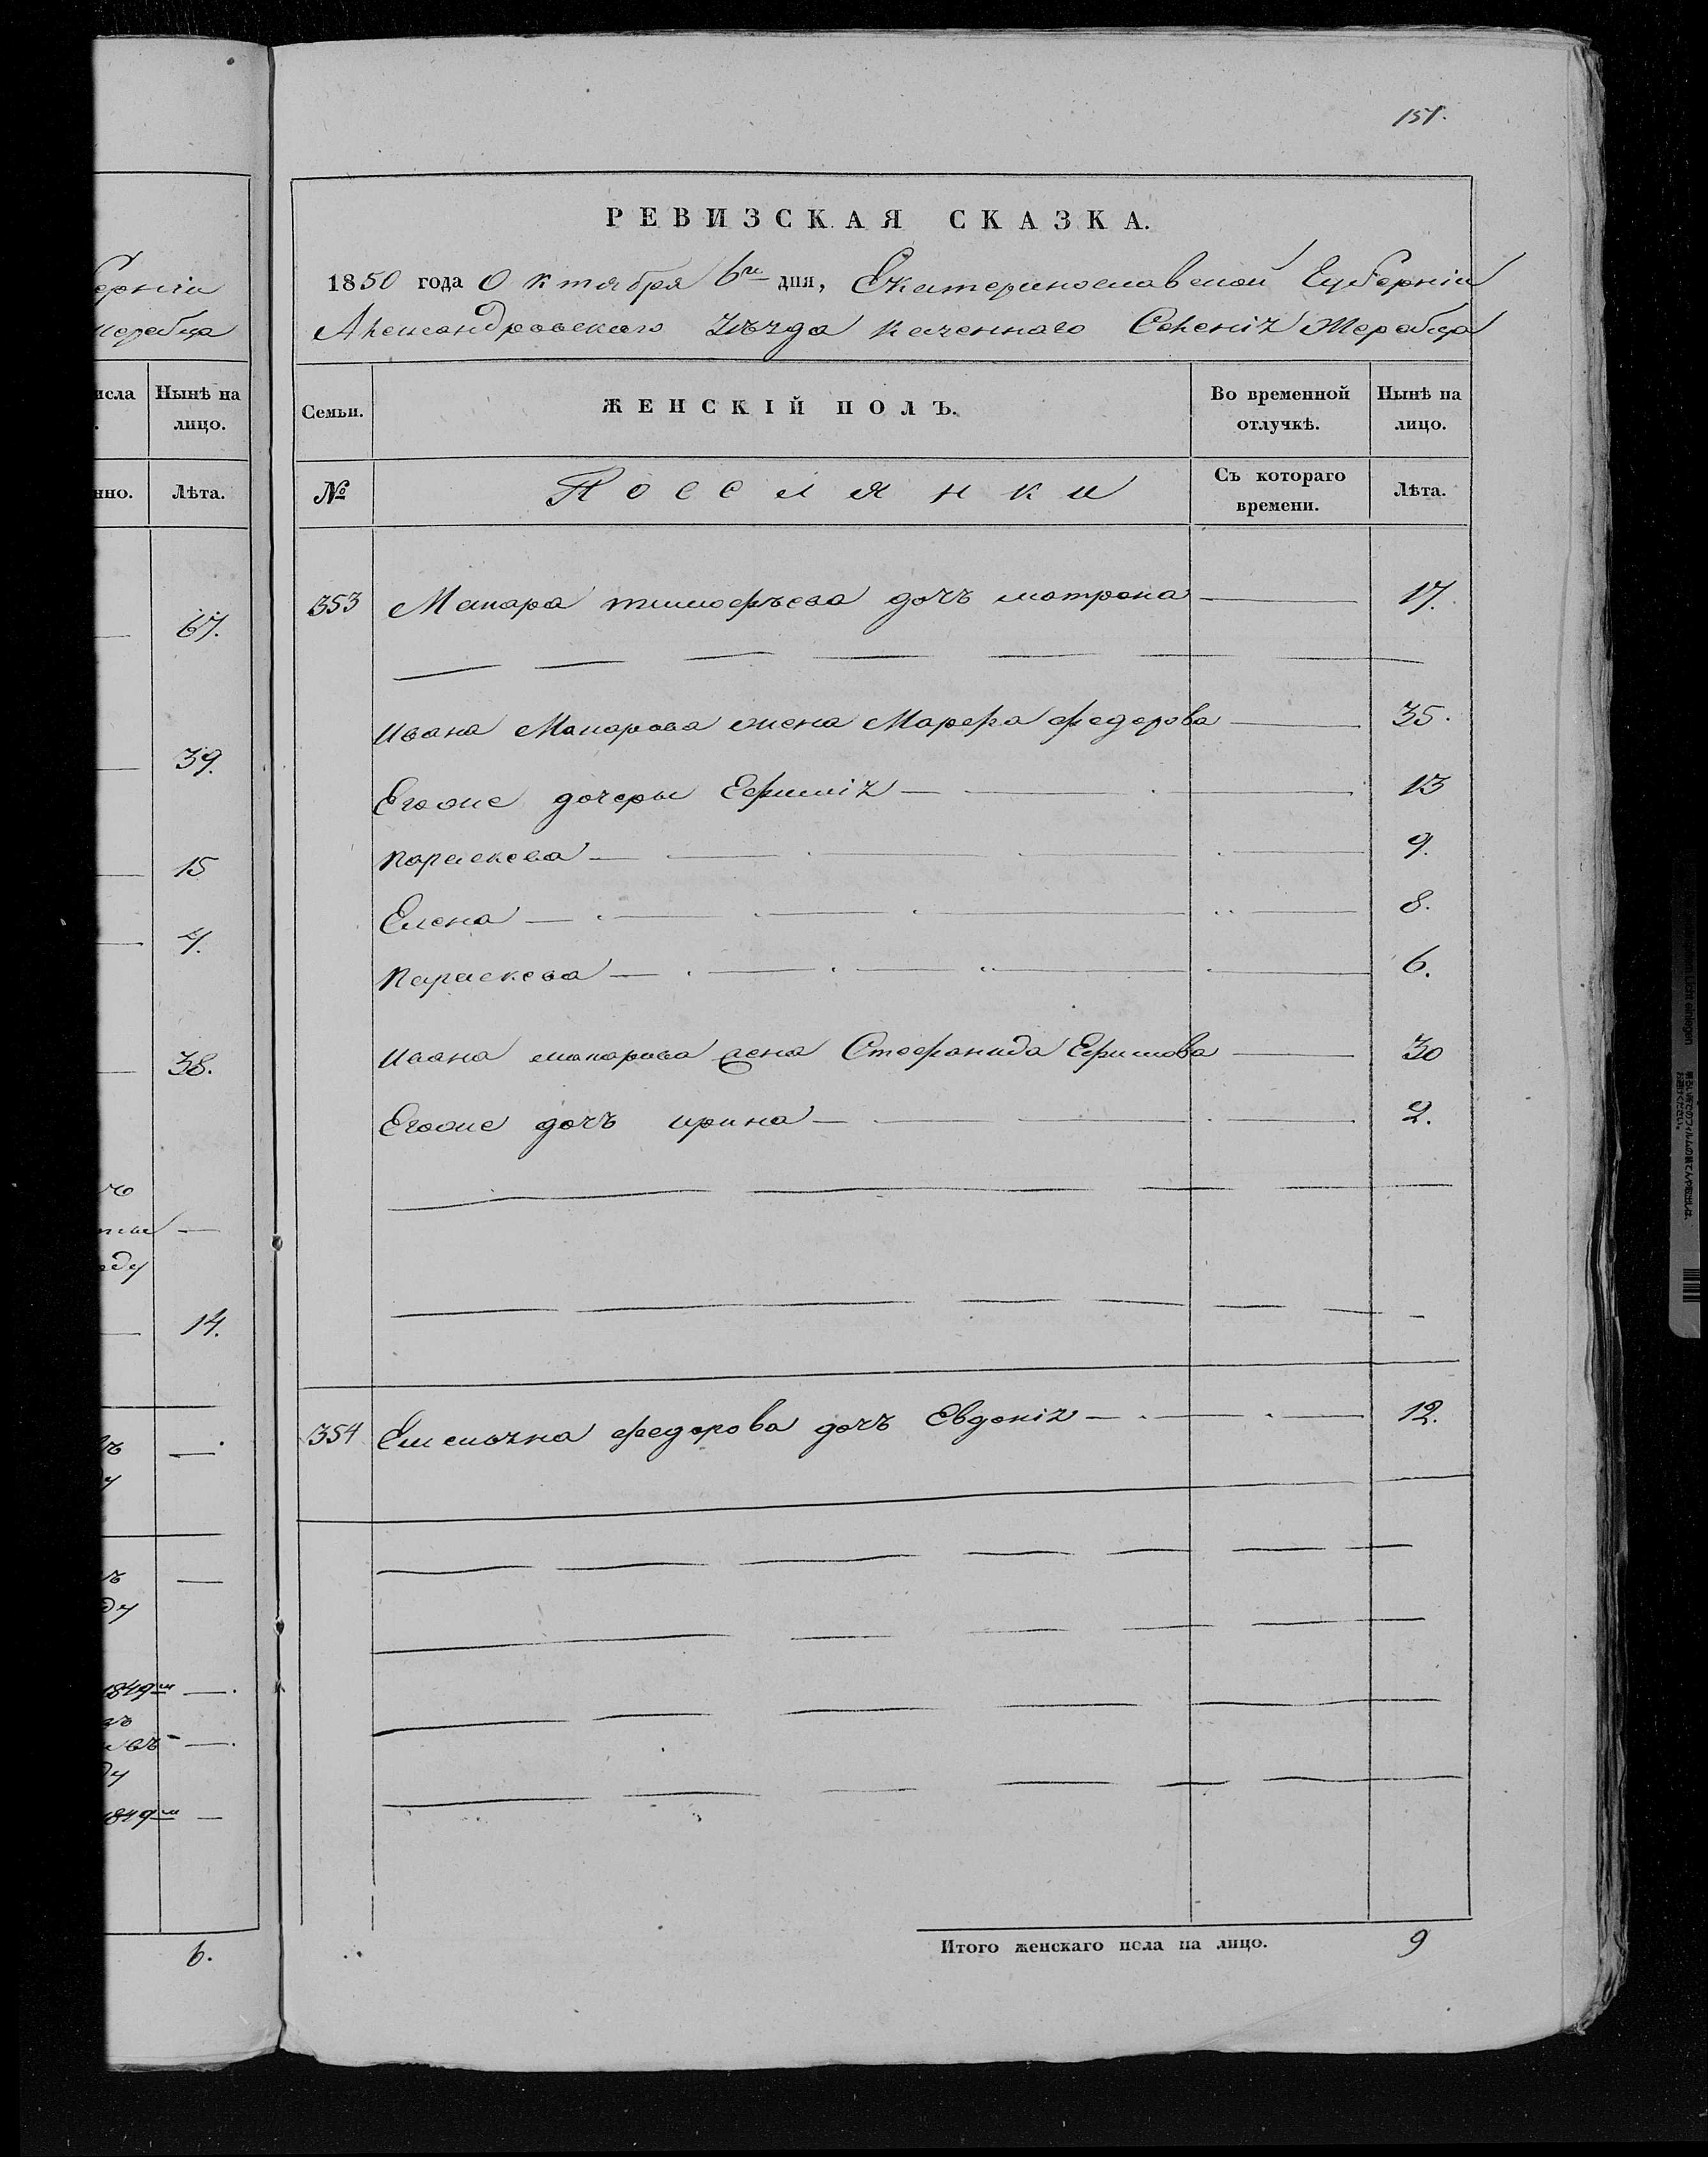 151.
РЕВИЗСКАЯ СКАЗКА.
1850 года Октября 6го дня, Екатеринославской Губерніи
Александровскаго Уѣзда казеннаго Селенія Жеребца
Семьи.
ЖЕНСКІЙ ПОЛЪ.
Во временной отлучкѣ.
Нынѣ на лицо.
№
Поселянки
Съ котораго времени.
Лѣта.
353 Макара тимофѣева дочъ матрона — 17.
Ивана Макарова жена Марфа федорова — 35.
Егоже дочеры Ефимія — 13
параскева — 9.
Елена — 8.
параскева — 6.
Ивана макарова жена Стефанида Ефимова — 30
Егоже дочъ ирина — 2.
354 федорова дочъ Евдокія — 12.
Итого женскаго пола на лицо. 9
ерніи
жеребца
исла
Нынѣ на лицо.
нно.
Лѣта.
67.
39.
15
4.
38.
14.
1849
1849
6.